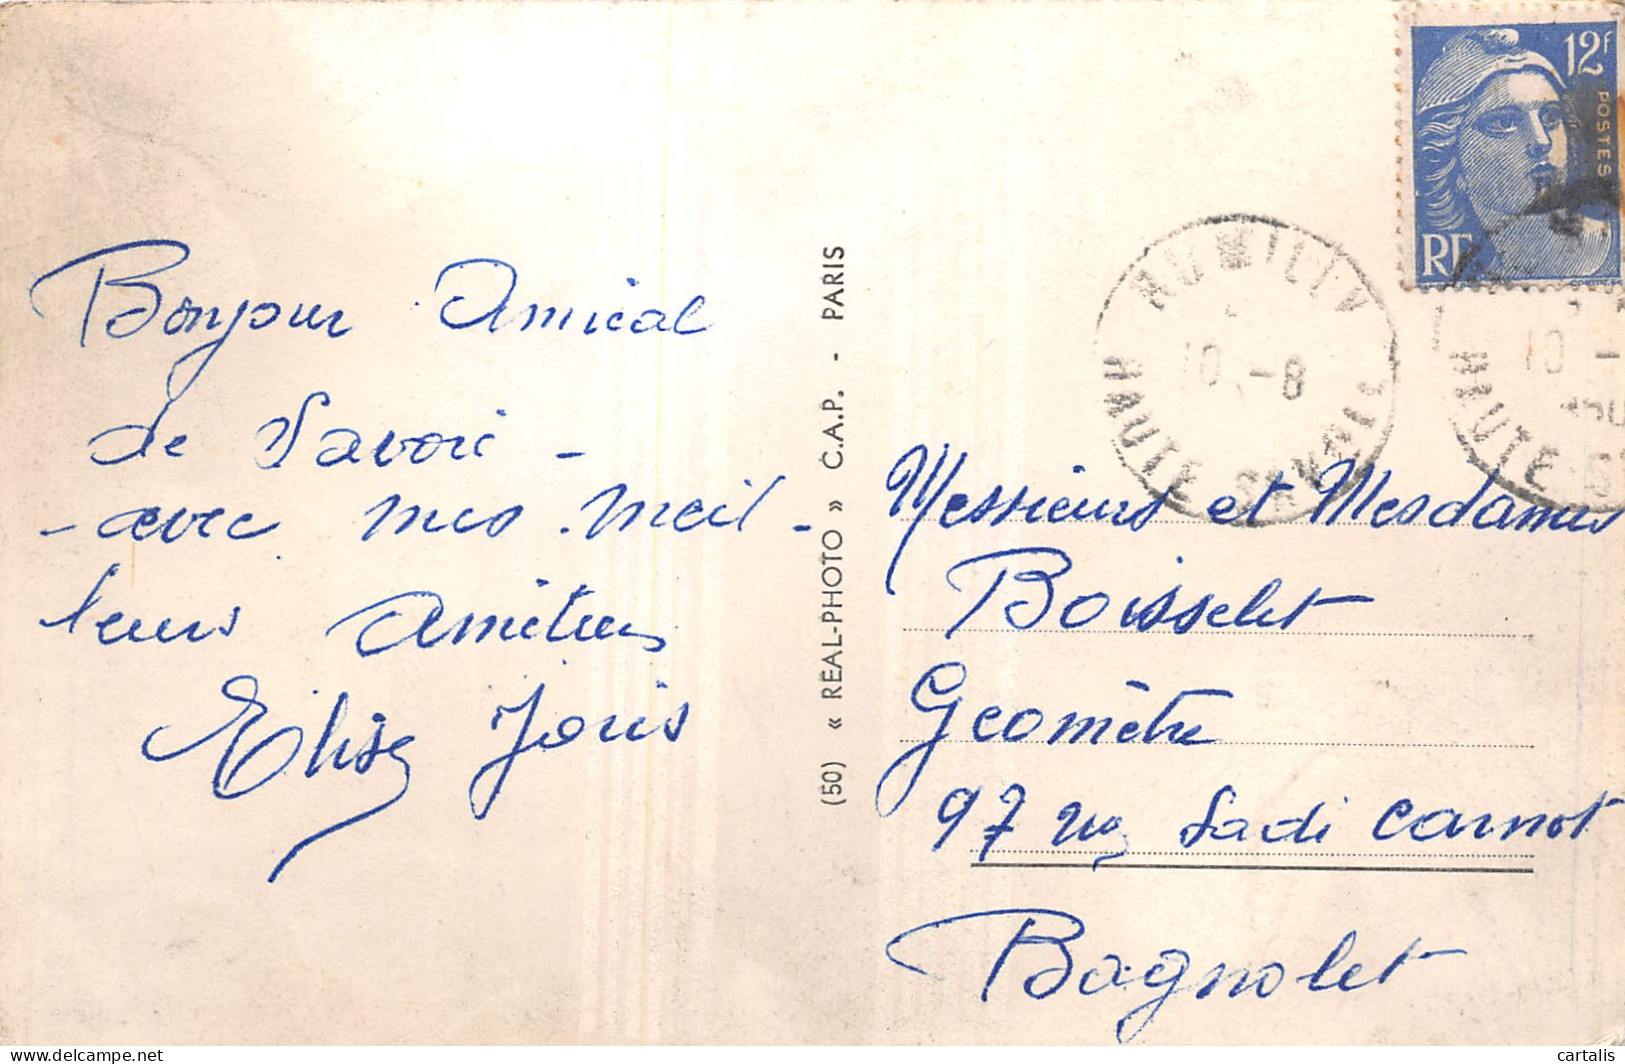 Bonjour Amical
de Savoie -
- avec mes meil -
leurs Amitiés
Elise Joris
(50) « REAL-PHOTO » C.A.P. - PARIS
12F
POSTES
RF
RUMILLY
10 -8
HAUTE SAVOIE
10 -
HAUTE S
Messieurs et Mesdames
Boisselet
Geomètre
97 rue Sadi Carnot
Bagnolet
delcampe.net
cartalis